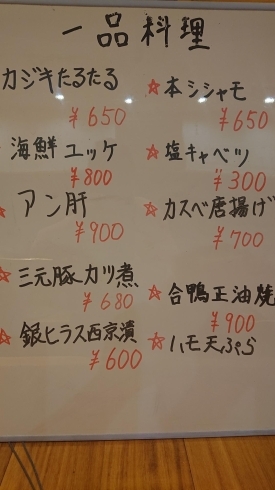 一品料理
カジキたるたる
¥650
海鮮ユッケ
¥800
☆アン肝
¥900
☆三元豚カツ煮
¥680
☆銀ヒラス西京漬
¥600
☆本シシャモ
¥650
☆塩キャベツ
¥300
☆カスベ唐揚げ
¥700
☆合鴨正油焼
¥900
☆ハモ天ぷら